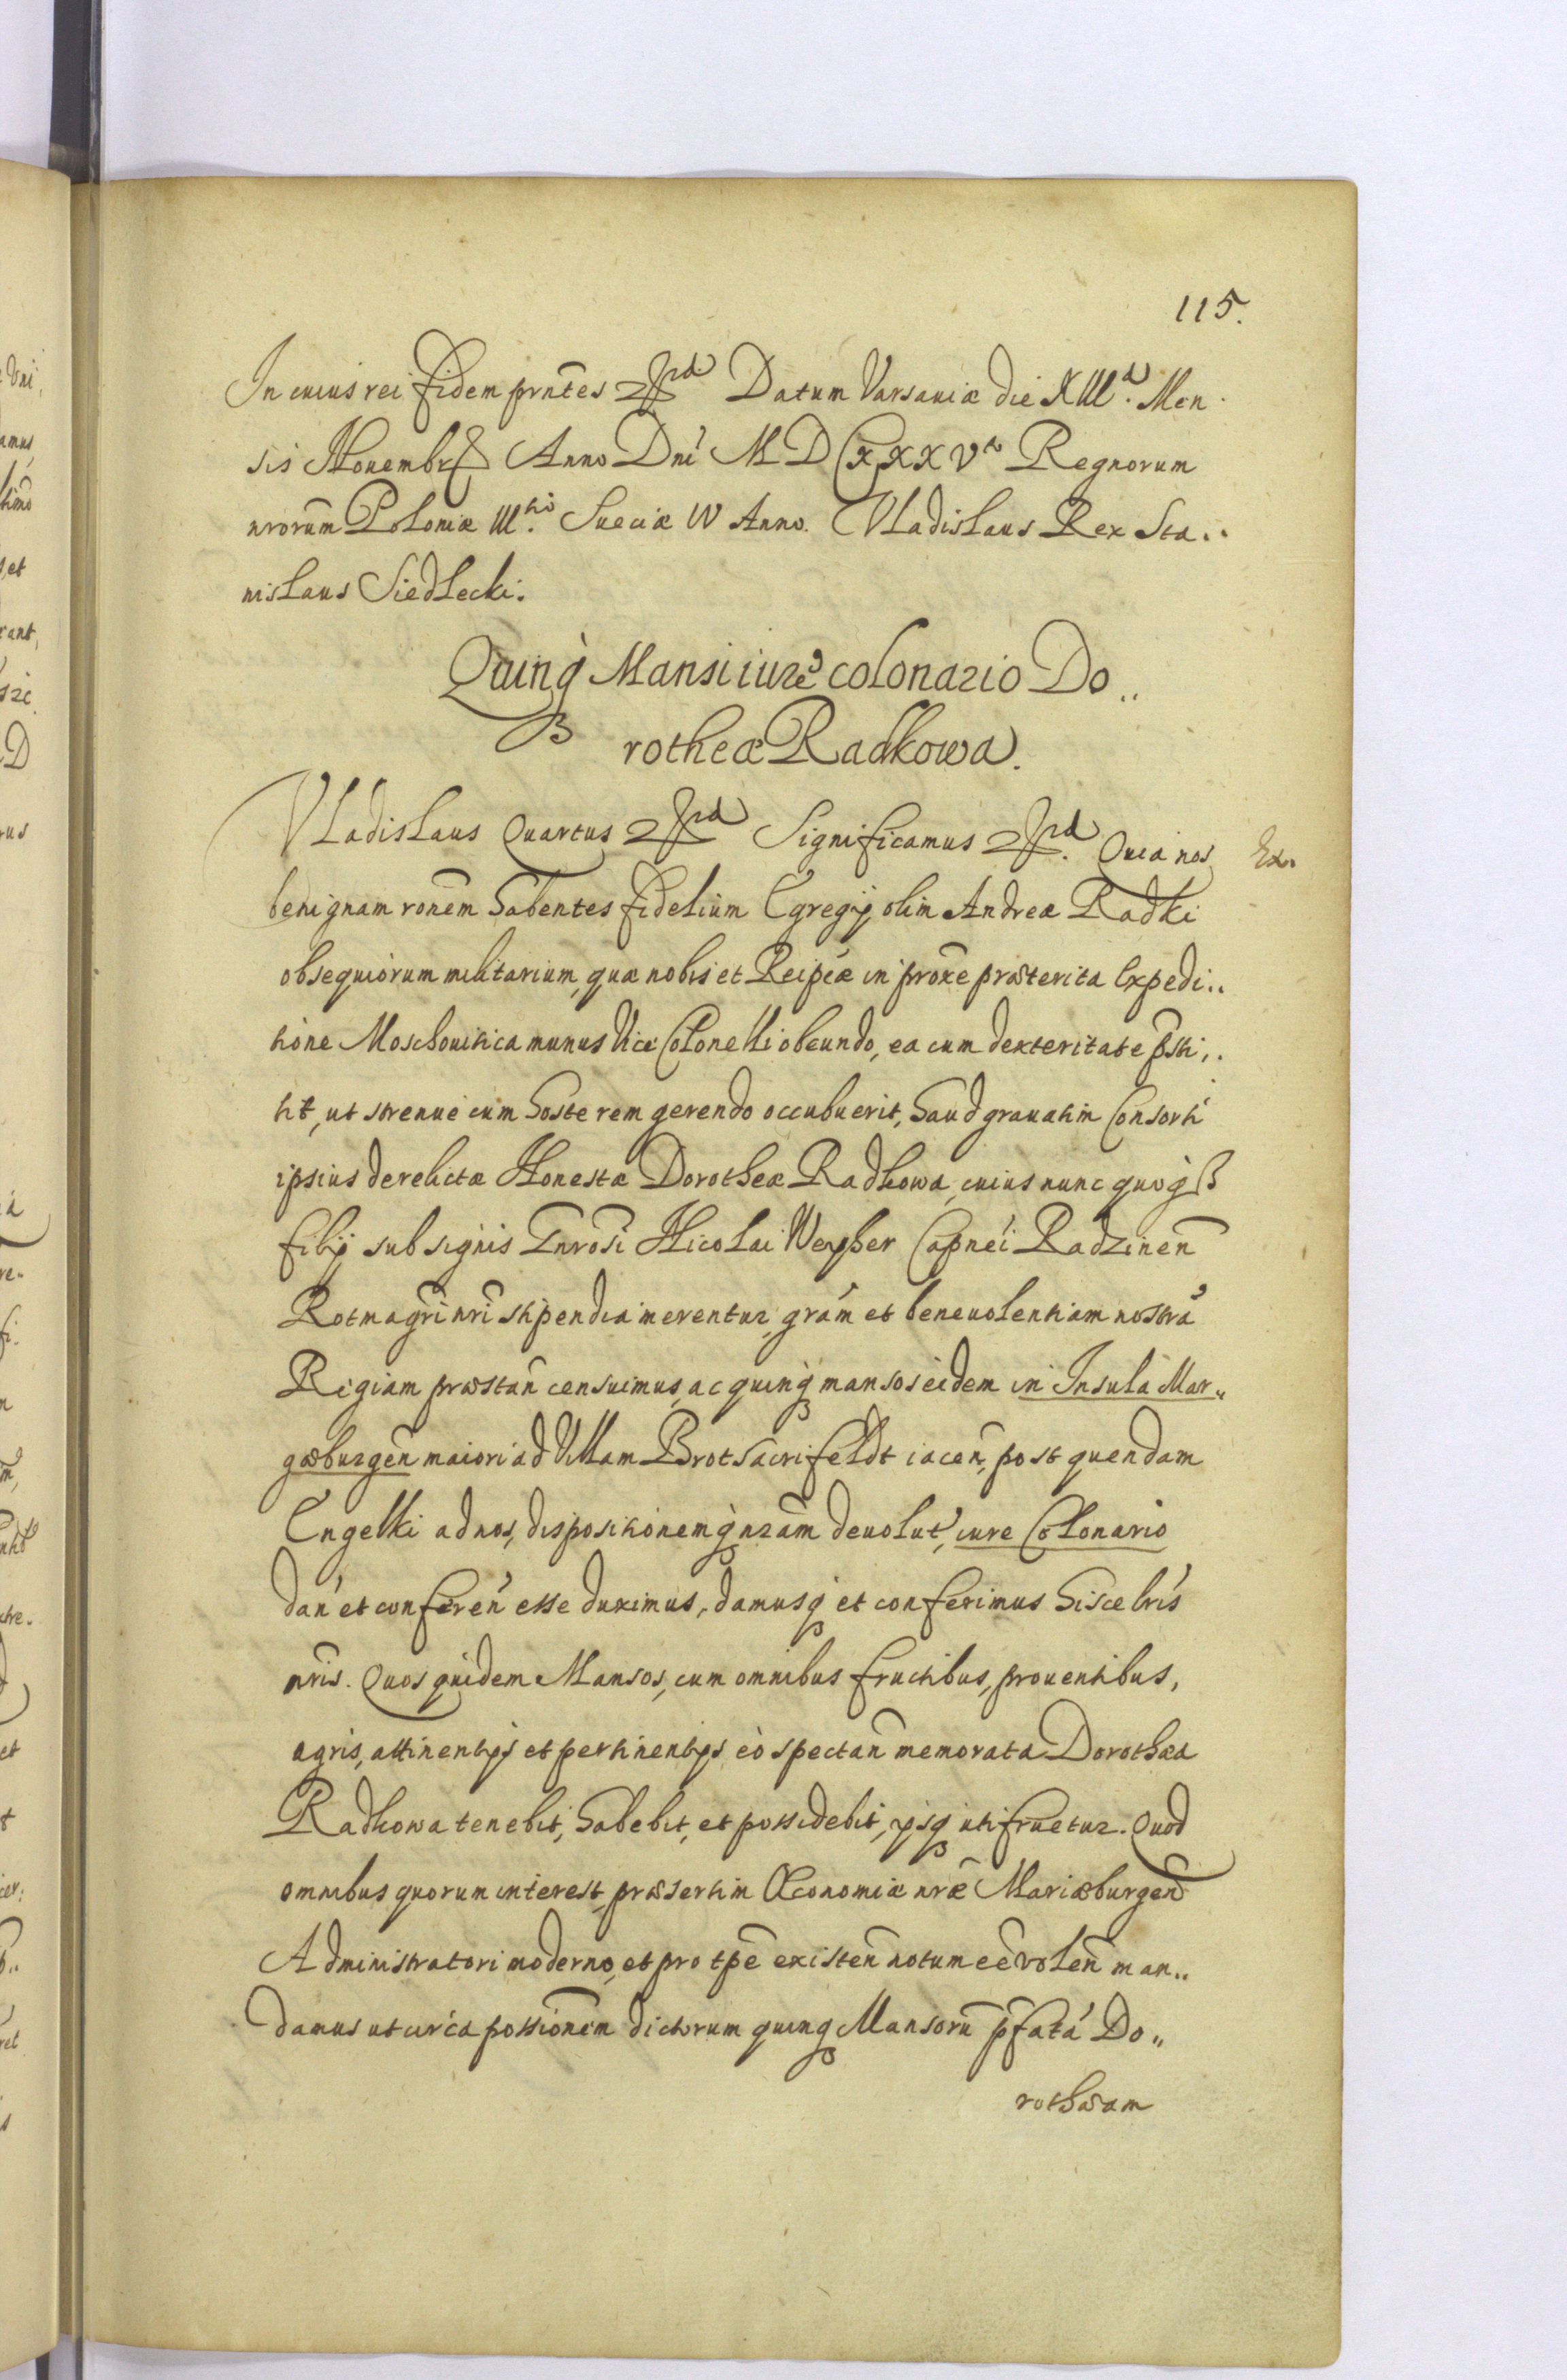 115.
In cuius rei fidem prntes Datum Varsauiæ die XIII. Men
sis Nouembr Anno Dni M D C XXX Vto Regnorum
nrorum Poloniæ III. Sueciæ IV Anno. Vladislaus Rex Sta..
nislaus Siedlecki.
Quinq Mansi iure colonario Do..
rotheæ Radkowa.
Vladislaus Quartus Significamus Quia nos
Ex.
benignam ronem habentes fidelium Egregij olim Andreæ Radki
obsequiorum militarium, quæ nobis et Reipcæ in proxe præterita Expedi..
tione Moschouitica munus Vice Colonelli obeundo, ea cum dexteritate psti..
tit, ut strenue cum hoste rem gerendo occubuerit, haud grauatim Consorti
ipsius derelictæ Honestæ Dorotheæ Radkowa, cuius nunc quoq
filij sub signis Gnrosi Nicolai Weyher Capnei Radzinen
Rotmagri nri stipendia merentur, gram et beneuolentiam nostra
Regiam præstan censuimus, ac quinq mansos eidem in Insula Mar..
gæburgen maiori ad Villam Brotsacrifeldt iacen, post quendam
Engelki ad nos, dispositionemq nram deuolut, iure Colonario
dan et conferen esse duximus, damusq et conferimus hisce lris
nris. Quos quidem Mansos, cum omnibus fructibus, prouentibus,
agris, attinentijs et pertinentijs eò spectan memorata Dorothæa
Radkowa tenebit, habebit, et possidebit, ijsq utifruetur. Quod
omnibus quorum interest, præsertim Œconomiæ nræ Mariæburgen
Administratori moderno, et pro tpe existen notum ee volen man..
damus ut circa possionem dictorum quinq Mansoru pfata Do..
rothæam